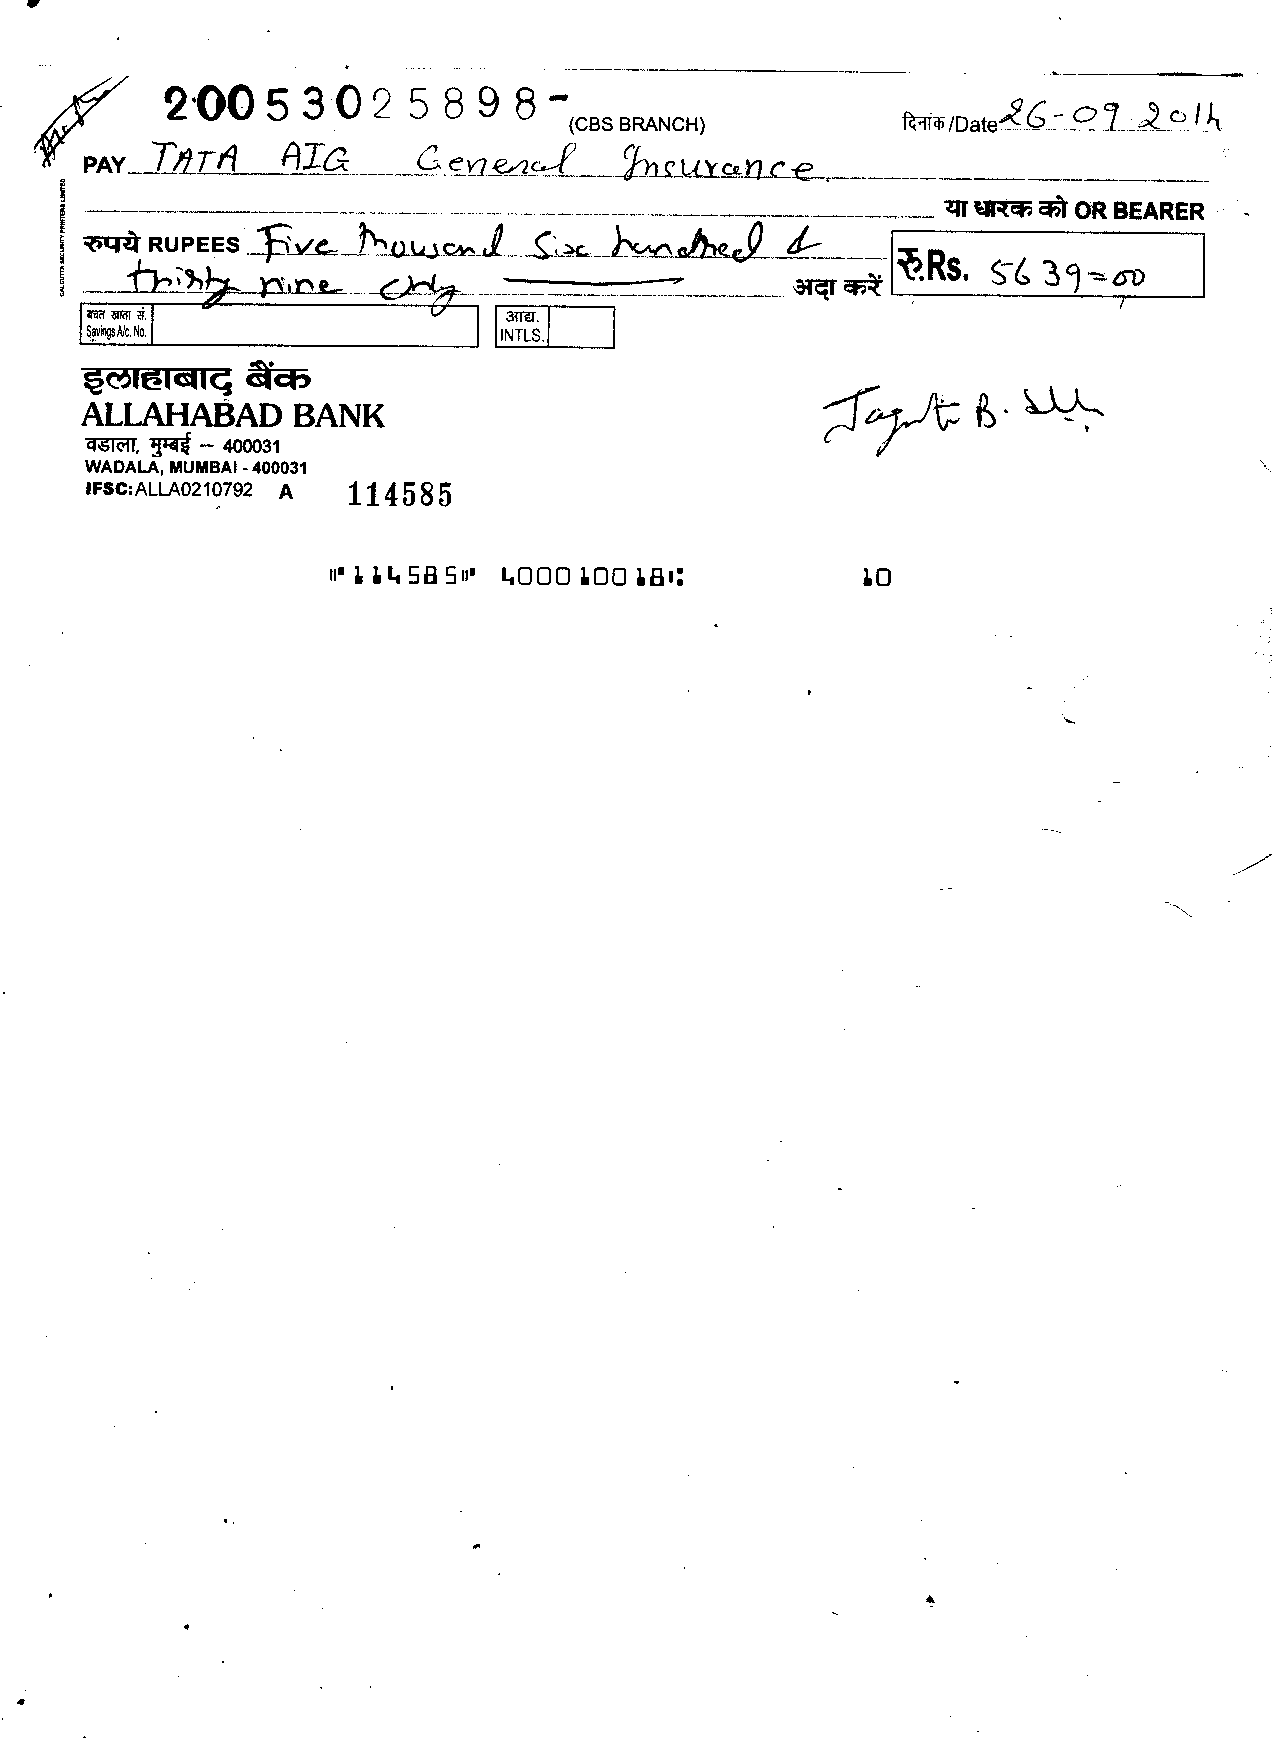 20053025898-
(CBS BRANCH)
दिनांक/Date 26-09 2014
PAY TATA AIG General Insurance
या धारक को OR BEARER
रुपये RUPEES Five Thousand Six hundred &
thirty nine only
अदा करें
रु.Rs. 5639=00
बचत खाता सं.
Savings A/c. No.
आद्य.
INTLS.
CALCUTTA SECURITY PRINTERS LIMITED
इलाहाबाद बैंक
ALLAHABAD BANK
वडाला, मुम्बई – 400031
WADALA, MUMBAI - 400031
IFSC:ALLA0210792 A 114585
B.
⑈114585⑈ 400010018⑆ 10